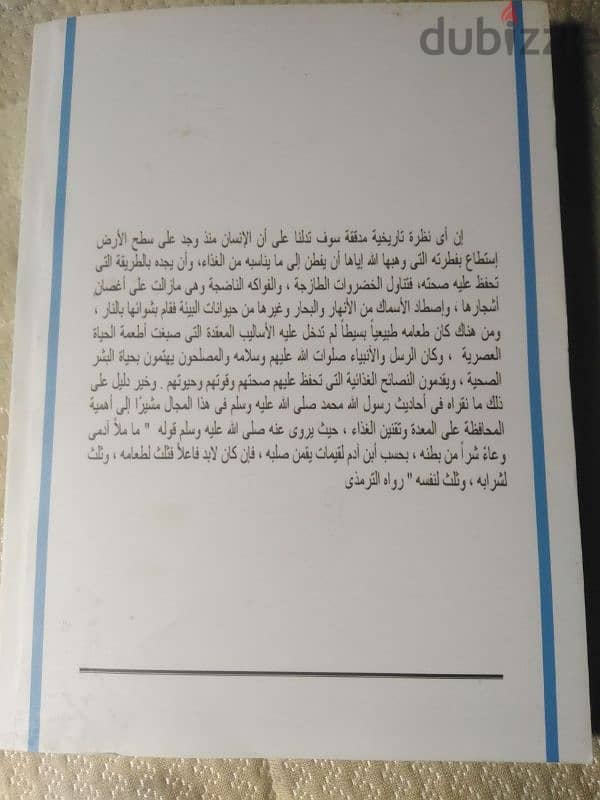 dubizzle
إن أى نظرة تاريخية مدققة سوف تدلنا على أن الإنسان منذ وجد على سطح الأرض
إستطاع بفطرته التى وهبها الله إياها أن يفطن إلى ما يناسبه من الغذاء، وأن يجده بالطريقة التى
تحفظ عليه صحته، فتناول الخضروات الطازجة ، والفواكه الناضجة وهى مازالت على أغصان
أشجارها ، وإصطاد الأسماك من الأنهار والبحار وغيرها من حيوانات البيئة فقام بشوائها بالنار ،
ومن هناك كان طعامه طبيعياً بسيطاً لم تدخل عليه الأساليب المعقدة التى صبغت أطعمة الحياة
العصرية ، وكان الرسل والأنبياء صلوات الله عليهم وسلامه والمصلحون يهتمون بحياة البشر
الصحية ، ويقدمون النصائح الغذائية التى تحفظ عليهم صحتهم وقوتهم وحيوتهم . وخير دليل على
ذلك ما نقراه فى أحاديث رسول الله محمد صلى الله عليه وسلم فى هذا المجال مشيرًا إلى أهمية
المحافظة على المعدة وتقنين الغذاء ، حيث يروى عنه صلى الله عليه وسلم قوله " ما ملأ آدمى
وعاءً شراً من بطنه ، بحسب أبن آدم لقيمات يقمن صلبه ، فإن كان لابد فاعلاً فثلث لطعامه ، وثلث
لشرابه ، وثلث لنفسه " رواه الترمذى